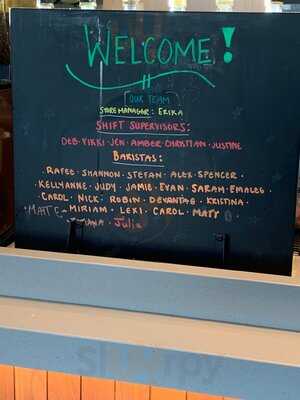 WELCOME!
OUR TEAM
STORE MANAGER: ERIKA
SHIFT SUPERVISORS:
DEB · VIKKI · JEN · AMBER · CHRISTIAN · JUSTINE
BARISTAS:
RAFEE · SHANNON · STEFAN · ALEX · SPENCER ·
KELLYANNE · JUDY · JAMIE · EVAN · SARAH ·
CAROL · NICK · ROBIN · DEVANTAG · KRISTINA ·
· MATT C · MIRIAM · LEXI · CAROL · MATT
· Julia
Sluurpy